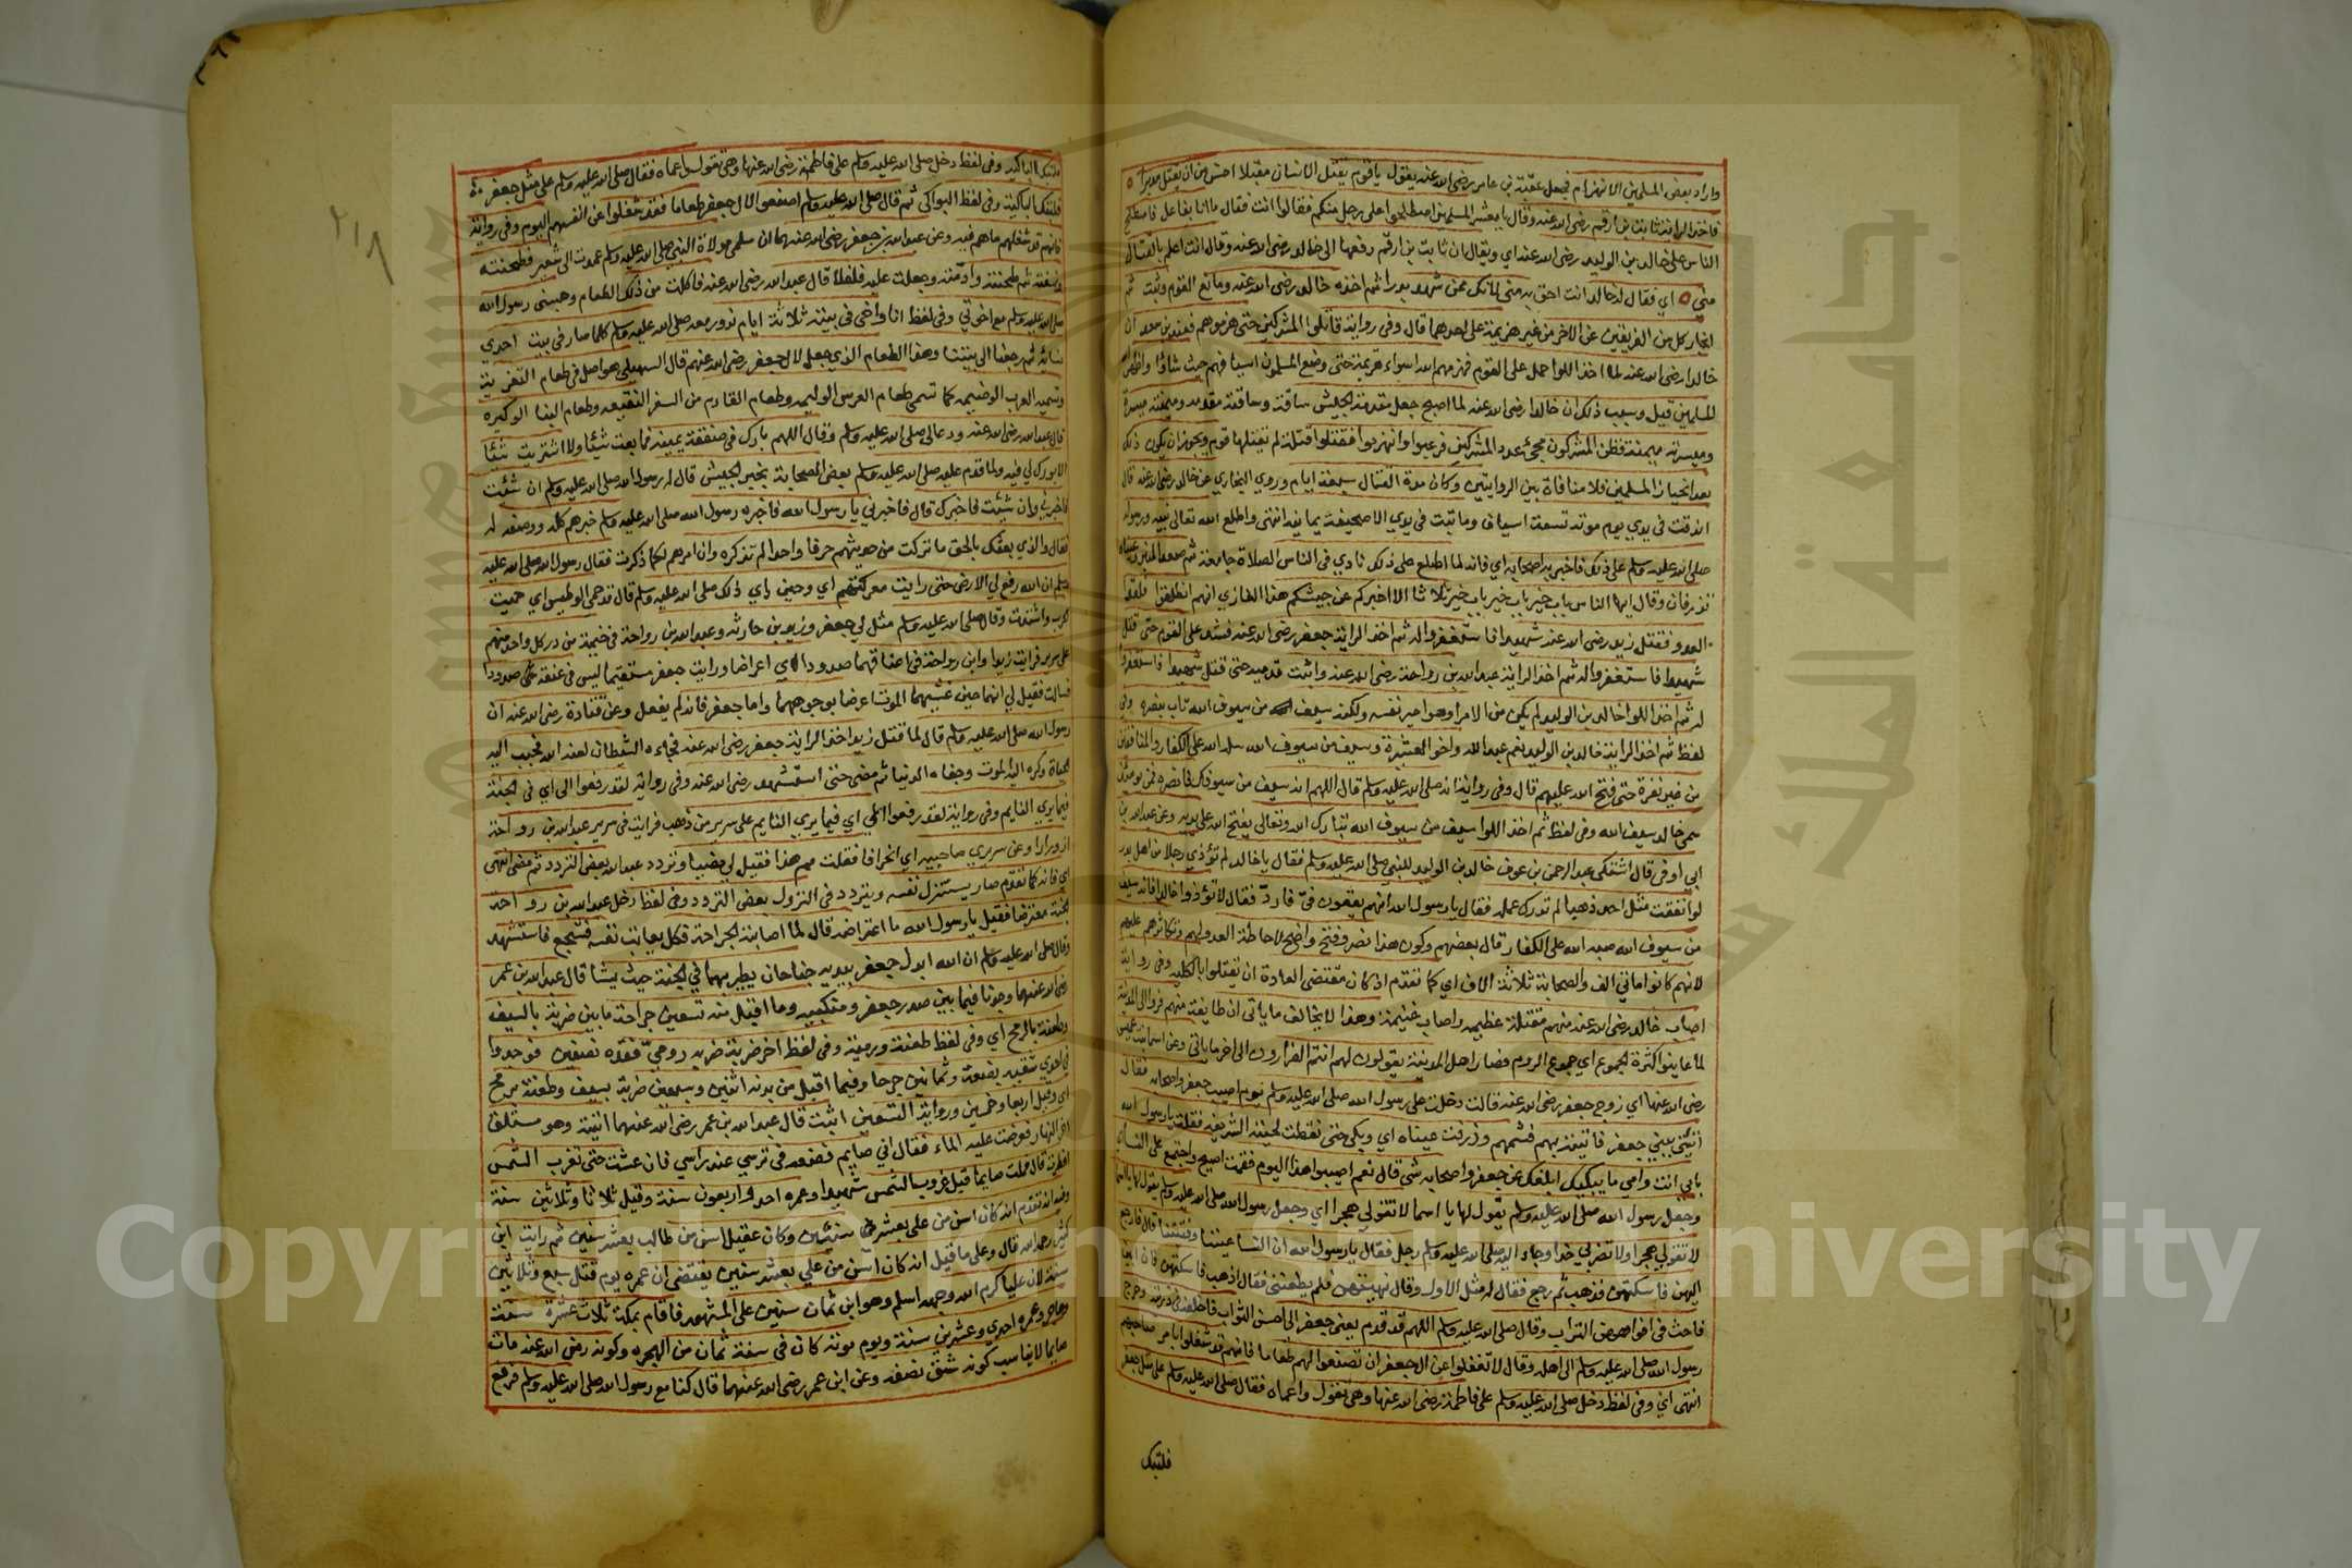 واراد بعض المسلمين الانهزام فجعل عقبة بن عامر رضي الله عنه يقول يا قوم يقتل الانسان مقبلا احسن من ان يقتل مدبرا
فاخذ الراية ثابت بن ارقم رضي الله عنه وقال يا معشر المسلمين اصطلحوا على رجل منكم فقالوا انت فقال ما انا بفاعل فاصطلح
الناس على خالد بن الوليد رضي الله عنه اي ويقال ان ثابت بن ارقم دفعها الى خالد رضي الله عنه وقال انت اعلم بالقتال
مني اي فقال له خالد انت احق به مني لانك ممن شهد بدرا ثم اخذه خالد رضي الله عنه ومانع القوم وثبت ثم
انحاز كل من الفريقين عن الاخر من غير هزيمة على احدهما قال وفي رواية قاتلوا المشركين حتى هزموهم فعند بن سعد ان
خالدا رضي الله عنه لما اخذ اللوا حمل على القوم فهزمهم الله اسوا هزيمة حتى وضع المسلمون اسيافهم حيث شاؤا واظهر
للمسلمين قيل وسبب ذلك ان خالدا رضي الله عنه لما اصبح جعل مقدمة الجيش ساقة وساقته مقدمه وميمنته ميسرة
وميسرته ميمنة فظن المشركون مجئ عدد المشركين فرعبوا وانهزموا فقتلوا قتلة لم يقتلها قوم ويجوز ان يكون ذلك
بعد انحياز المسلمين فلا منافاة بين الروايتين وكان مدة القتال سبعة ايام وروي البخاري عن خالد رضي الله عنه قال
اندقت في يدي يوم موتة تسعة اسياف وما ثبت في يدي الا صحيفة يمانية انتهى واطلع الله تعالى نبيه ورسوله
صلى الله عليه وسلم على ذلك فاخبر به اصحابه اي فانه لما اطلع على ذلك نادي في الناس الصلاة جامعة ثم صعد المنبر وعيناه
تذرفان وقال ايها الناس باب خير باب خير باب خير ثلاثا الا اخبركم عن جيشكم هذا الغازي انهم انطلقوا فلقوا
العدو فقتل زيد رضي الله عنه شهيدا فاستغفروا له ثم اخذ الراية جعفر رضي الله عنه فشد على القوم حتى قتل
شهيدا فاستغفروا له ثم اخذ الراية عبد الله بن رواحة رضي الله عنه واثبت قدميه حتى قتل شهيدا فاستغفروا
له ثم اخذ اللوا خالد بن الوليد لم يكن من الامرا وهو امير نفسه ولكنه سيف من سيوف الله بنصره وفي
لفظ ثم اخذ الراية خالد بن الوليد نعم عبد الله واخو العشيرة وسيف من سيوف الله سله الله على الكفار والمنافقين
من غير نفرة حتى فتح الله عليهم قال وفي رواية انه صلى الله عليه وسلم قال اللهم انه سيف من سيوفك فانصره فمن يومئذ
سمي خالد سيف الله وفي لفظ ثم اخذ اللوا سيف من سيوف الله تبارك الله وتعالى يفتح الله على يديه وعن عبد الله بن
ابي اوفى قال اشتكى عبد الرحمن بن عوف خالد بن الوليد للنبي صلى الله عليه وسلم فقال يا خالد لم تؤذي رجلا من اهل بدر
لو انفقت مثل احد ذهبا لم تدرك عمله فقال يا رسول الله انهم يقعون في فارد فقال لا تؤذوا خالدا فانه سيف
من سيوف الله صبه الله على الكفار قال بعضهم وكون هذا نصر وفتح واضح لاحاطة العدو بهم وتكاثرهم عليهم
لانهم كانوا مائتي الف والصحابة ثلاثة الاف اي كما تقدم اذ كان مقتضى العادة ان يقتلوا بالكلية وفي رواية
اصاب خالد رضي الله عنه منهم مقتلة عظيمه واصاب غنيمة وهذا لا يخالف ما ياتي ان طايفة منهم فروا الى المدينة
لما عاينوا كثرة الجموع اي جموع الروم فصار اهل المدينة يقولون لهم انتم الفرارون الى اخر ما ياتي وعن اسما بنت عميس
رضي الله عنها اي زوج جعفر رضي الله عنه قالت دخلت على رسول الله صلى الله عليه وسلم يوم اصيب جعفر واصحابه فقال
ائتني ببني جعفر فاتيته بهم فشمهم وذرفت عيناه اي وبكى حتى نقطت لحيته الشريفه فقلت يا رسول الله
بابي انت وامي ما يبكيك ابلغك عن جعفر واصحابه شي قال نعم اصيبوا هذا اليوم فقمت اصيح واجتمع على النساء
وجعل رسول الله صلى الله عليه وسلم يقول لها يا اسما لا تقولي هجرا اي وجعل رسول الله صلى الله عليه وسلم يقول لها يا اسما
لا تقولي هجرا ولا تضربي خدا وجاء اليه صلى الله عليه وسلم رجل فقال يا رسول الله ان النسا عييننا وفتننا قال فارجع
اليهن فاسكتهن فذهب ثم رجع فقال له مثل الاول وقال نهيتهن فلم يطعنني فقال اذهب فاسكتهن فان ابين
فاحث في افواههن التراب وقال صلى الله عليه وسلم اللهم قد قدم يعني جعفر الى احسن الثواب فاخلفه في ذريته وخرج
رسول الله صلى الله عليه وسلم الى اهله وقال لا تغفلوا عن ال جعفر ان تصنعوا لهم طعاما فانهم قد شغلوا بامر صاحبهم
انتهى اي وفي لفظ دخل صلى الله عليه وسلم على فاطمة رضي الله عنها وهي تقول واعماه فقال صلى الله عليه وسلم على مثل جعفر
فلتبك
٢١٨
فلتبك الباكيه وفي لفظ دخل صلى الله عليه وسلم على فاطمة رضي الله عنها وهي تقول واعماه فقال صلى الله عليه وسلم على مثل جعفر
فلتبك الباكية وفي لفظ البواكي ثم قال صلى الله عليه وسلم اصنعوا لال جعفر طعاما فقد شغلوا عن انفسهم اليوم وفي رواية
فانهم قد شغلهم ما هم فيه وعن عبد الله بن جعفر رضي الله عنهما ان سلمى مولاة النبي صلى الله عليه وسلم عمدت الى شعير فطحنته
ونسفته ثم طبخته وادمته وجعلت عليه فلفلا قال عبد الله رضي الله عنه فاكلت من ذلك الطعام وحبسني رسول الله
صلى الله عليه وسلم مع اخوتي وفي لفظ انا واخي في بيته ثلاثة ايام ندور معه صلى الله عليه وسلم كلما صار في بيت احدى
نسائه ثم رجعنا الى بيتنا وهذا الطعام الذي جعل لال جعفر رضي الله عنهم قال السهيلي هو اصل في طعام التعزية
وتسميه العرب الوضيمه كما تسمي طعام العرس الوليمه وطعام القادم من السفر النقيعه وطعام البنا الوكيره
قال عبد الله رضي الله عنه ودعا لي صلى الله عليه وسلم وقال اللهم بارك في صفقة يمينه فما بعت شيئا ولا اشتريت شيئا
الا بورك لي فيه ولما قدم عليه صلى الله عليه وسلم بعض الصحابة بخبر الجيش قال له رسول الله صلى الله عليه وسلم ان شئت
فاخبرني وان شئت فاخبرك قال فاخبرني يا رسول الله فاخبره رسول الله صلى الله عليه وسلم خبرهم كله ووصفه له
فقال والذي بعثك بالحق ما تركت من حديثهم حرفا واحدا لم تذكره وان امرهم لكما ذكرت فقال رسول الله صلى الله عليه
وسلم ان الله رفع لي الارض حتى رايت معركتهم اي وحين راي ذلك صلى الله عليه وسلم قال قد حمي الوطيس اي حميت
الحرب واشتدت وقال صلى الله عليه وسلم مثل لي جعفر وزيد بن حارثه وعبد الله بن رواحة في خيمة من در كل واحد منهم
على سرير فرايت زيدا وابن رواحة في اعناقهما صدودا اي اعراضا ورايت جعفر مستقيما ليس في عنقه صدودا
فسالت فقيل لي انهما حين غشيهما الموت اعرضا بوجوههما واما جعفر فانه لم يفعل وعن قتادة رضي الله عنه ان
رسول الله صلى الله عليه وسلم قال لما قتل زيد اخذ الراية جعفر رضي الله عنه فجاءه الشيطان لعنه الله فحبب اليه
الحياة وكره اليه الموت ومناه الدنيا ثم مضى حتى استشهد رضي الله عنه وفي رواية لقد رفعوا الي اي في الجنة
فيما يري النايم وفي رواية لقد رفعوا الي اي فيما يري النايم على سرير من ذهب فرايت في سرير عبد الله بن رواحة
ازورارا وعن سريري صاحبيه اي انحرافا فقلت مم هذا فقيل لي مضيا وتردد عبد الله بعض التردد ثم مضى انتهى
اي فانه كما تقدم صار يستنزل نفسه ويتردد في النزول بعض التردد وفي لفظ دخل عبد الله بن رواحة
الجنة معترضا فقيل يا رسول الله ما اعتراضه قال لما اصابته الجراحة نكل فعاتب نفسه فتشجع فاستشهد
وقال صلى الله عليه وسلم ان الله ابدل جعفر بيديه جناحان يطير بهما في الجنة حيث يشا قال عبد الله بن عمر
رضي الله عنهما وجدنا فيما بين صدر جعفر ومنكبيه وما اقبل منه تسعين جراحة ما بين ضربة بالسيف
وطعنة بالرمح اي وفي لفظ طعنة ورمية وفي لفظ اخر ضربة ضربه رومي فقده نصفين فوجدوا
في احدي شقيه بضعة وثمانين جرحا وفيما اقبل من بدنه اثنين وسبعين ضربة بسيف وطعنة برمح
اي وقيل اربعا وخمسين ورواية التسعين اثبت قال عبد الله بن عمر رضي الله عنهما اتيته وهو مستلق
اخر النهار فعرضت عليه الماء فقال اني صايم فضعه في ترسي عند راسي فان عشت حتى تغرب الشمس
افطرت قال فمات صايما قبل غروب الشمس شهيدا وعمره احد واربعون سنة وقيل ثلاثا وثلاثين سنة
وفيه انه تقدم انه كان اسن من علي بعشر سنين وكان عقيل اسن من طالب بعشر سنين ثم رايت ابن
كثير رحمه الله قال وعلى ما قيل انه كان اسن من علي بعشر سنين يقتضى ان عمره يوم قتل سبع وثلاثين
سنة لان عليا كرم الله وجهه اسلم وهو ابن ثمان سنين على المشهور فاقام بمكة ثلاث عشرة سنة
وهاجر وعمره احدي وعشرين سنة ويوم موتة كان في سنة ثمان من الهجره وكونه رضي الله عنه مات
صايما لا يناسب كونه شق نصفه وعن ابن عمر رضي الله عنهما قال كنا مع رسول الله صلى الله عليه وسلم فرفع
Copyright © King Saud University
جامعة الملك سعود